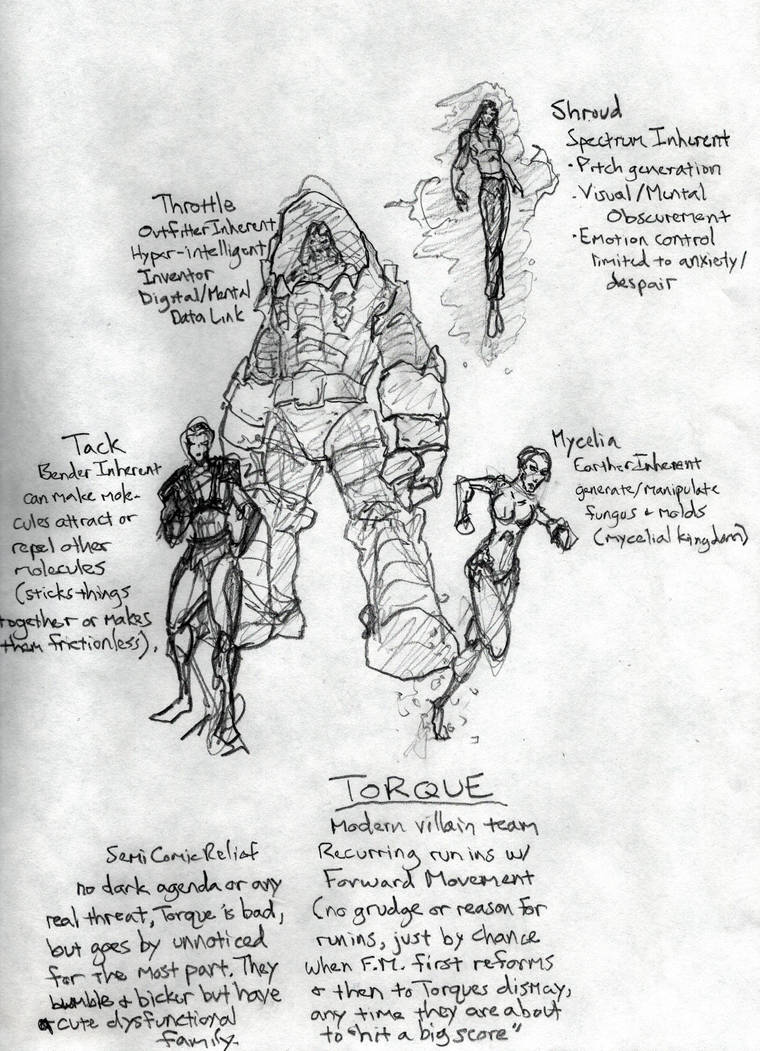 Shroud
Spectrum Inherent
• Pitch generation
• Visual/Mental
Obscurement
• Emotion control
limited to anxiety/
despair
Throttle
Outfitter Inherent
Hyper-intelligent
Inventor
Digital/Mental
Data Link
Tack
Bender Inherent
can make mole-
cules attract or
repel other
molecules
(sticks things
together or makes
them frictionless).
Mycelia
Earther Inherent
generate/manipulate
fungus & molds
(mycelial kingdom)
TORQUE
Modern villain team
Recurring run ins w/
Forward Movement
(no grudge or reason for
run ins, just by chance
when F.M. first reforms
& then to Torques dismay,
any time they are about
to "hit a big score"
Semi Comic Relief
no dark agenda or any
real threat, Torque is bad,
but goes by unnoticed
for the most part. They
bumble & bicker but have
a cute dysfunctional
family.